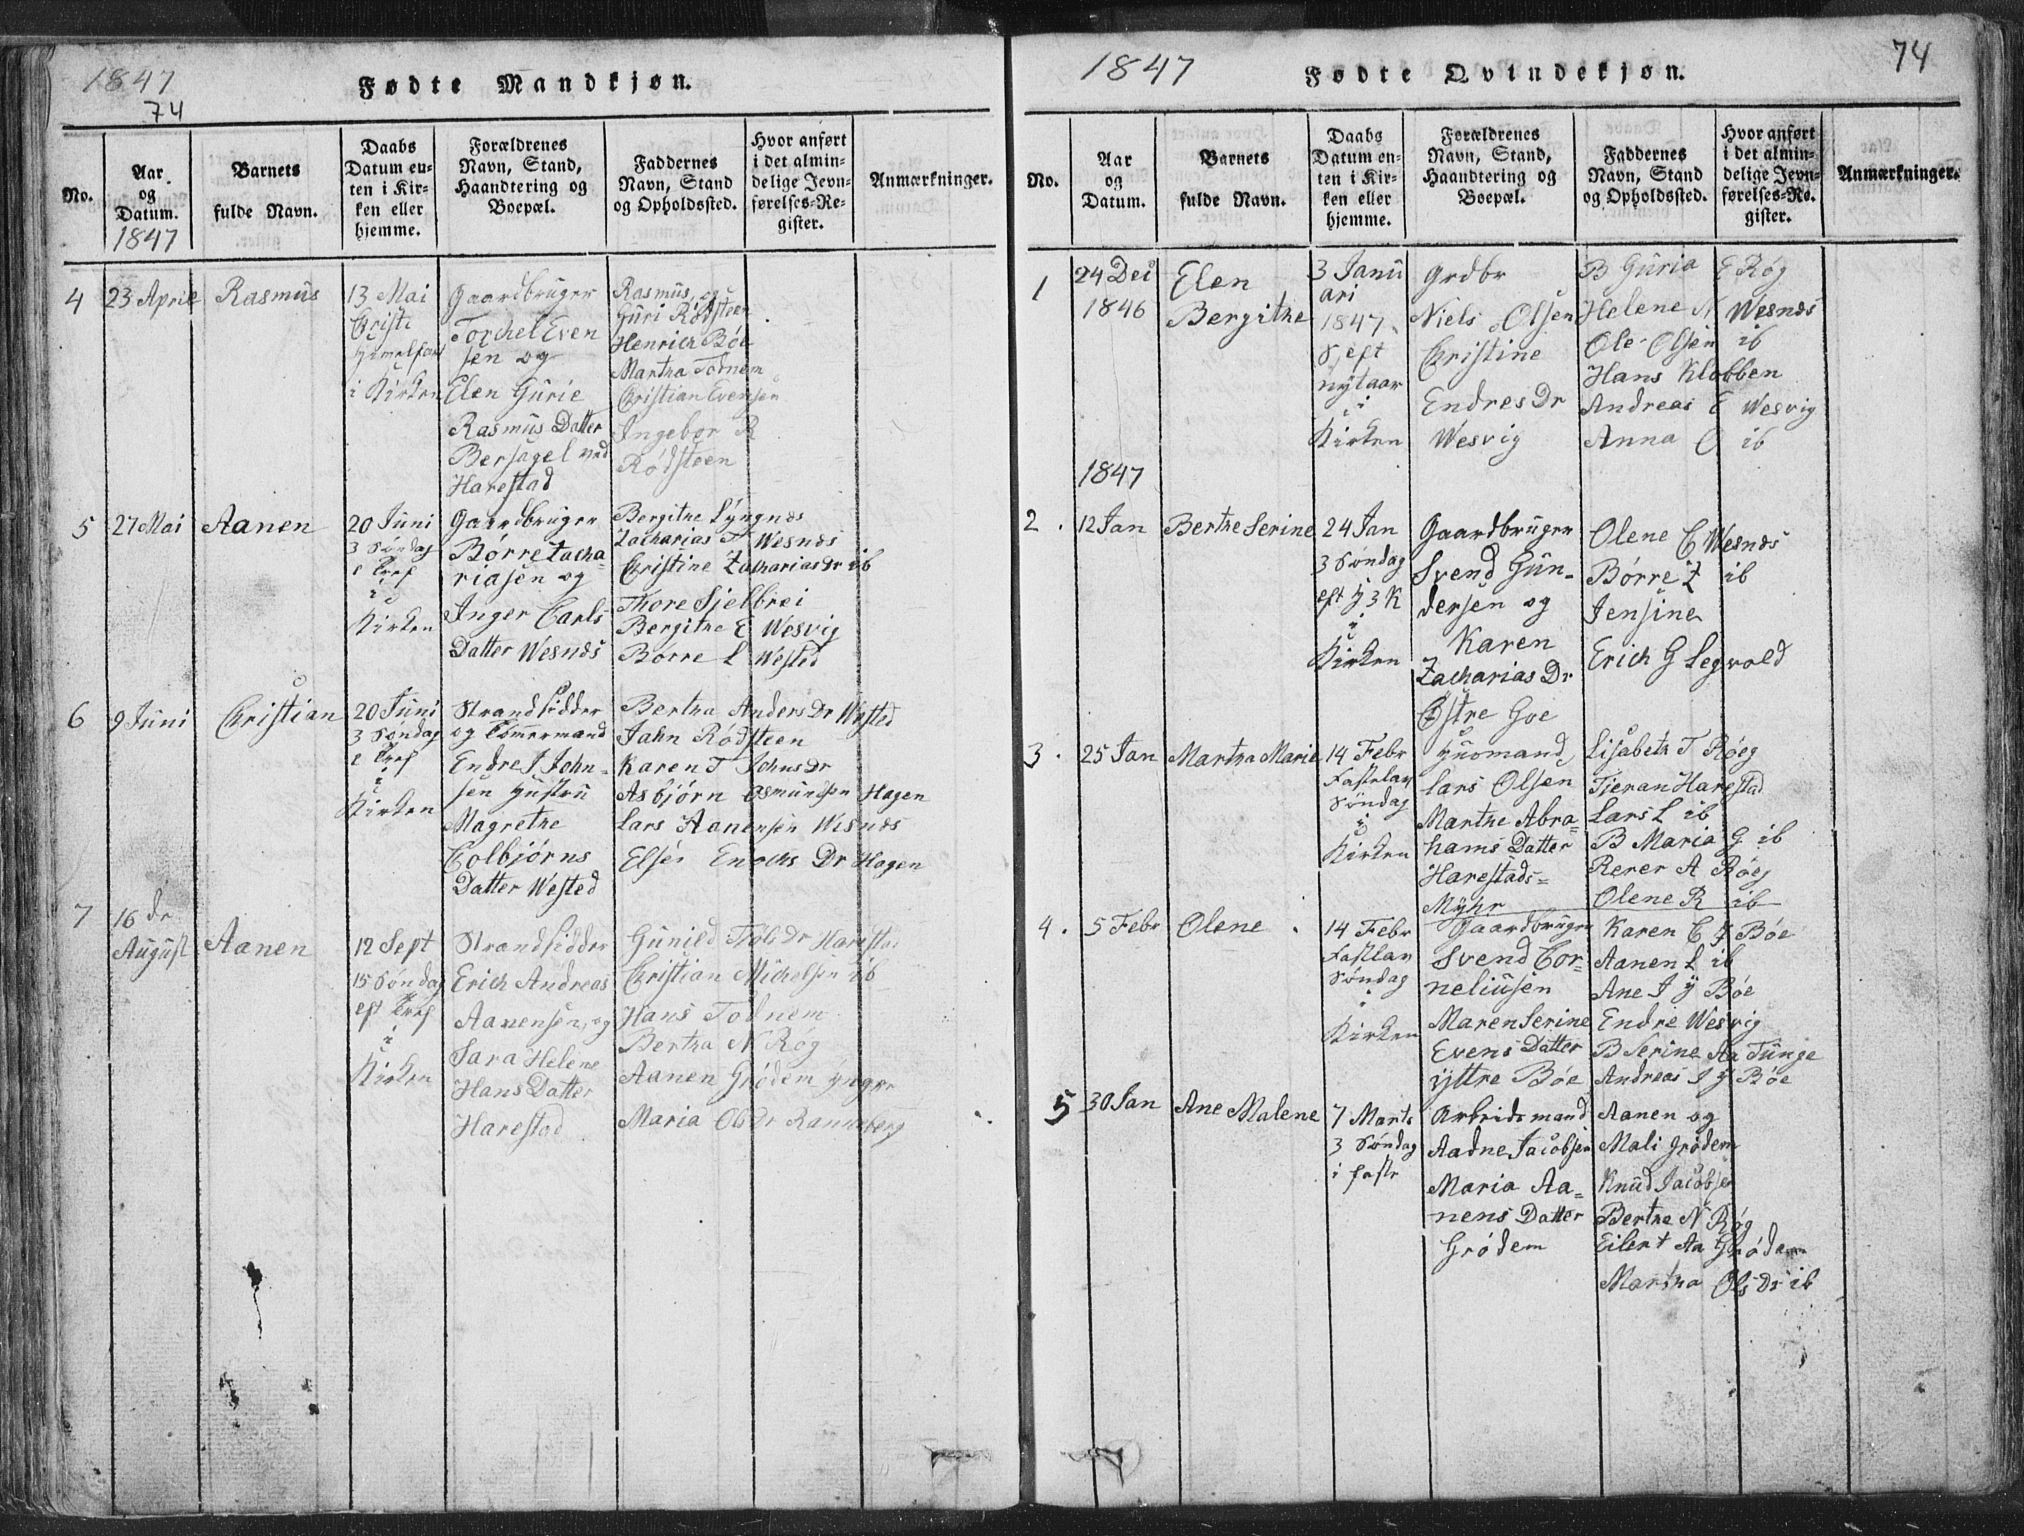 1847
74
Fødte Mandkjøn.
No.
Aar
og
Datum.
1847
Barnets
fulde Navn.
Daabs
Datum en-
ten i Kir-
ken eller
hjemme.
Forældrenes
Navn, Stand,
Haandtering og
Boepæl.
Faddernes
Navn, Stand
og Opholdssted.
Hvor anført
i det almin-
delige Jevn-
førelses-Re-
gister.
Anmærkninger.
4
23 April
Rasmus
13 Mai
Christi
Himelfart
i Kirken
Gaardbruger
Torchel Even
sen og
Elen Gurie
Rasmus Datter
Bersagel ved
Harestad
Rasmus og
Guri Rødsteen
Henrich Bøe
Martha Todnem
Christian Evensen
Ingebor R
Rødsteen
5
27 Mai
Aanen
20 Juni
3 Søndag
e Tref
i
Kirken
Gaardbruger
Børre Zacha-
riasen og
Inger Carls
Datter Wesnes
Bergithe Lyngnes
Zacharias T Wesnes
Christine Zacharias Dr ib
Thore Sjelbrei
Bergithe E Wesvig
Børre L Wested
6
9 Juni
Christian
20 Juni
3 Søndag
e Tref
i
Kirken
Strandsidder
og Tømermand
Endre J John-
sen Hustru
Magrethe
Colbjørns
Datter Wested
Bertha Anders Dr Wested
Jahn Rødsteen
Karen T Johns Dr
Asbjørn Osmundsen Hagen
Lars Aanensen Wesnes
Elser Enochs Dr Hagen
7
16 de
August
Aanen
12 Sept
15 Søndag
eft Tref
i
Kirken
Strandsidder
Erich Andreas
Aanensen og
Sara Helene
Hans Datter
Harestad
Gunild Trols Dr Harestad
Christian Michelsen ib
Hans Todnem
Bertha N Røg
Aanen Grødem yngre
Maria Ols Dr Ranneberg
1847
74
Fødte Qvindekjøn.
No.
Aar
og
Datum.
Barnets
fulde Navn.
Daabs
Datum en-
ten i Kir-
ken eller
hjemme.
Forældrenes
Navn, Stand,
Haandtering og
Boepæl.
Faddernes
Navn, Stand
og Opholdssted.
Hvor anført
i det almin-
delige Jevn-
førelses-Re-
gister.
Anmærkninger.
1
24 Dec
1846
Elen
Bergithe
3 Janu
ari
1847
S eft
nytaar
i
Kirken
Grdbr
Niels Olsen
Christine
Endres Dr
Wesvig
B Guria E Røg
Helene N Wesnes
Ole Olsen ib
Hans Klobben
Andreas E Wesvig
Anna O ib
1847
2
12 Jan
Berthe Serine
24 Jan
3 Søndag
eft H 3 K
i
Kirken
Gaardbruger
Svend Gun-
dersen og
Karen
Zacharias Dr
Østre Goe
Olene C Wesnes
Børre Z ib
Jensine
Erich G Legvold
3
25 Jan
Martha Marie
14 Febr
Fastelav
Søndag
i
Kirken
Huusmand
Lars Olsen
Marthe Abra-
hams Datter
Harestads-
Myhr
Lisabeth T Røeg
Tieran Harestad
Lars L ib
B Maria G ib
Rerer A Røeg
Olene R ib
4
5 Febr
Olene
14 Febr
Fastlav
Søndag
i
Kirken
Gaardbruger
Svend Cor-
neliusen
Maren Serine
Evens Datter
yttre Bøe
Karen C Z Bøe
Aanen L ib
Ane J Y Bøe
Endre Wesvig
B Serine Aa Tunge
Andreas J Y Bøe
5
30 Jan
Ane Malene
7 Marts
3 Søndag
i faste
Arbeidsmand
Aadne Jacobsen
Maria Aa-
nens Datter
Grødem
Aanen og
Mali Grødem
Knud Jacobsen
Berthe N Røg
Eilert Aa Grødem
Martha Ols Dr ib